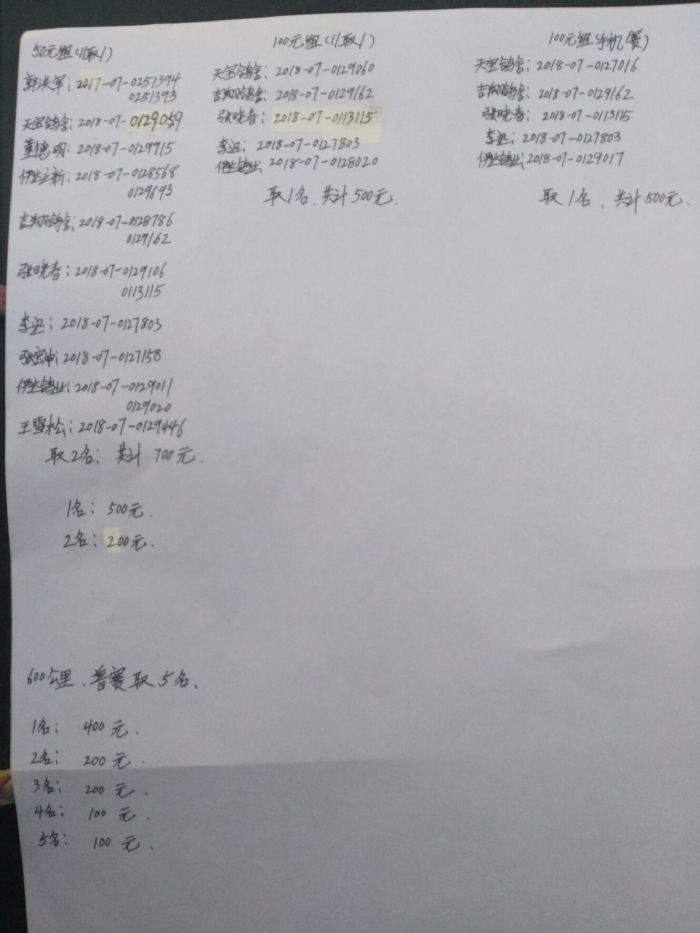 50元组(11取1)
郭洪军：2017-07-0251394
0251393
天宝鸽舍：2018-07-0129059
董德明：2018-07-0129915
伊立新：2018-07-0128568
0129693
吉翔鸽舍：2018-07-0128786
0129162
张晓春：2018-07-0129106
0113115
李迅：2018-07-0127803
2018-07-0127158
2018-07-0129011
0129020
王雪松：2018-07-0129446
取2名：共计700元.
1名：500元.
2名：200元.
100元组(11取1)
天宝鸽舍：2018-07-0129060
吉翔鸽舍：2018-07-0129162
张晓春：2018-07-0113115
李迅：2018-07-0127803
2018-07-0128020
取1名、共计500元.
100元组(手机赛)
天宝鸽舍：2018-07-0127016
吉翔鸽舍：2018-07-0129162
张晓春：2018-07-0113115
李迅：2018-07-0127803
2018-07-0129017
取1名、共计500元.
600公里、普赛取5名、
1名：400元.
2名：200元.
3名：200元.
4名：100元.
5名：100元.